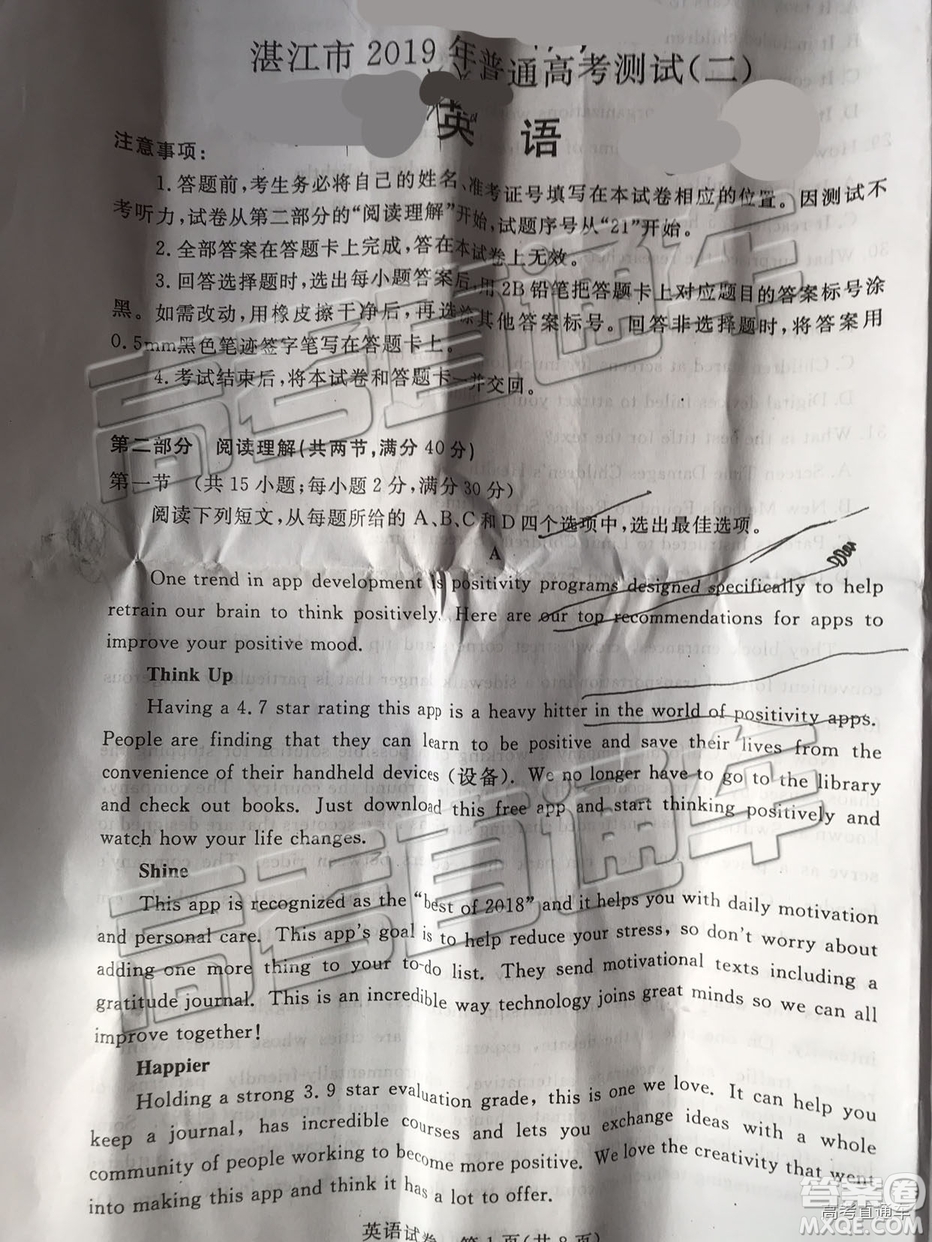 湛江市2019年普通高考测试(二)
英 语
注意事项:
1.答题前,考生务必将自己的姓名、准考证号填写在本试卷相应的位置。因测试不
考听力,试卷从第二部分的“阅读理解”开始,试题序号从“21”开始。
2.全部答案在答题卡上完成,答在本试卷上无效。
3.回答选择题时,选出每小题答案后,用2B铅笔把答题卡上对应题目的答案标号涂
黑。如需改动,用橡皮擦干净后,再选涂其他答案标号。回答非选择题时,将答案用
0.5mm黑色笔迹签字笔写在答题卡上。
4.考试结束后,将本试卷和答题卡一并交回。
第二部分 阅读理解(共两节,满分40分)
第一节 (共15小题;每小题2分,满分30分)
阅读下列短文,从每题所给的A、B、C和D四个选项中,选出最佳选项。
A
One trend in app development is positivity programs designed specifically to help
retrain our brain to think positively. Here are our top recommendations for apps to
improve your positive mood.
Think Up
Having a 4.7 star rating this app is a heavy hitter in the world of positivity apps.
People are finding that they can learn to be positive and save their lives from the
convenience of their handheld devices (设备). We no longer have to go to the library
and check out books. Just download this free app and start thinking positively and
watch how your life changes.
Shine
This app is recognized as the “best of 2018” and it helps you with daily motivation
and personal care. This app's goal is to help reduce your stress, so don't worry about
adding one more thing to your to-do list. They send motivational texts including a
gratitude journal. This is an incredible way technology joins great minds so we can all
improve together!
Happier
Holding a strong 3.9 star evaluation grade, this is one we love. It can help you
keep a journal, has incredible courses and lets you exchange ideas with a whole
community of people working to become more positive. We love the creativity that went
into making this app and think it has a lot to offer.
英语试卷 第1页(共8页)
高考直通车
高考直通车
答案圈
高考直通车
MXQE.COM